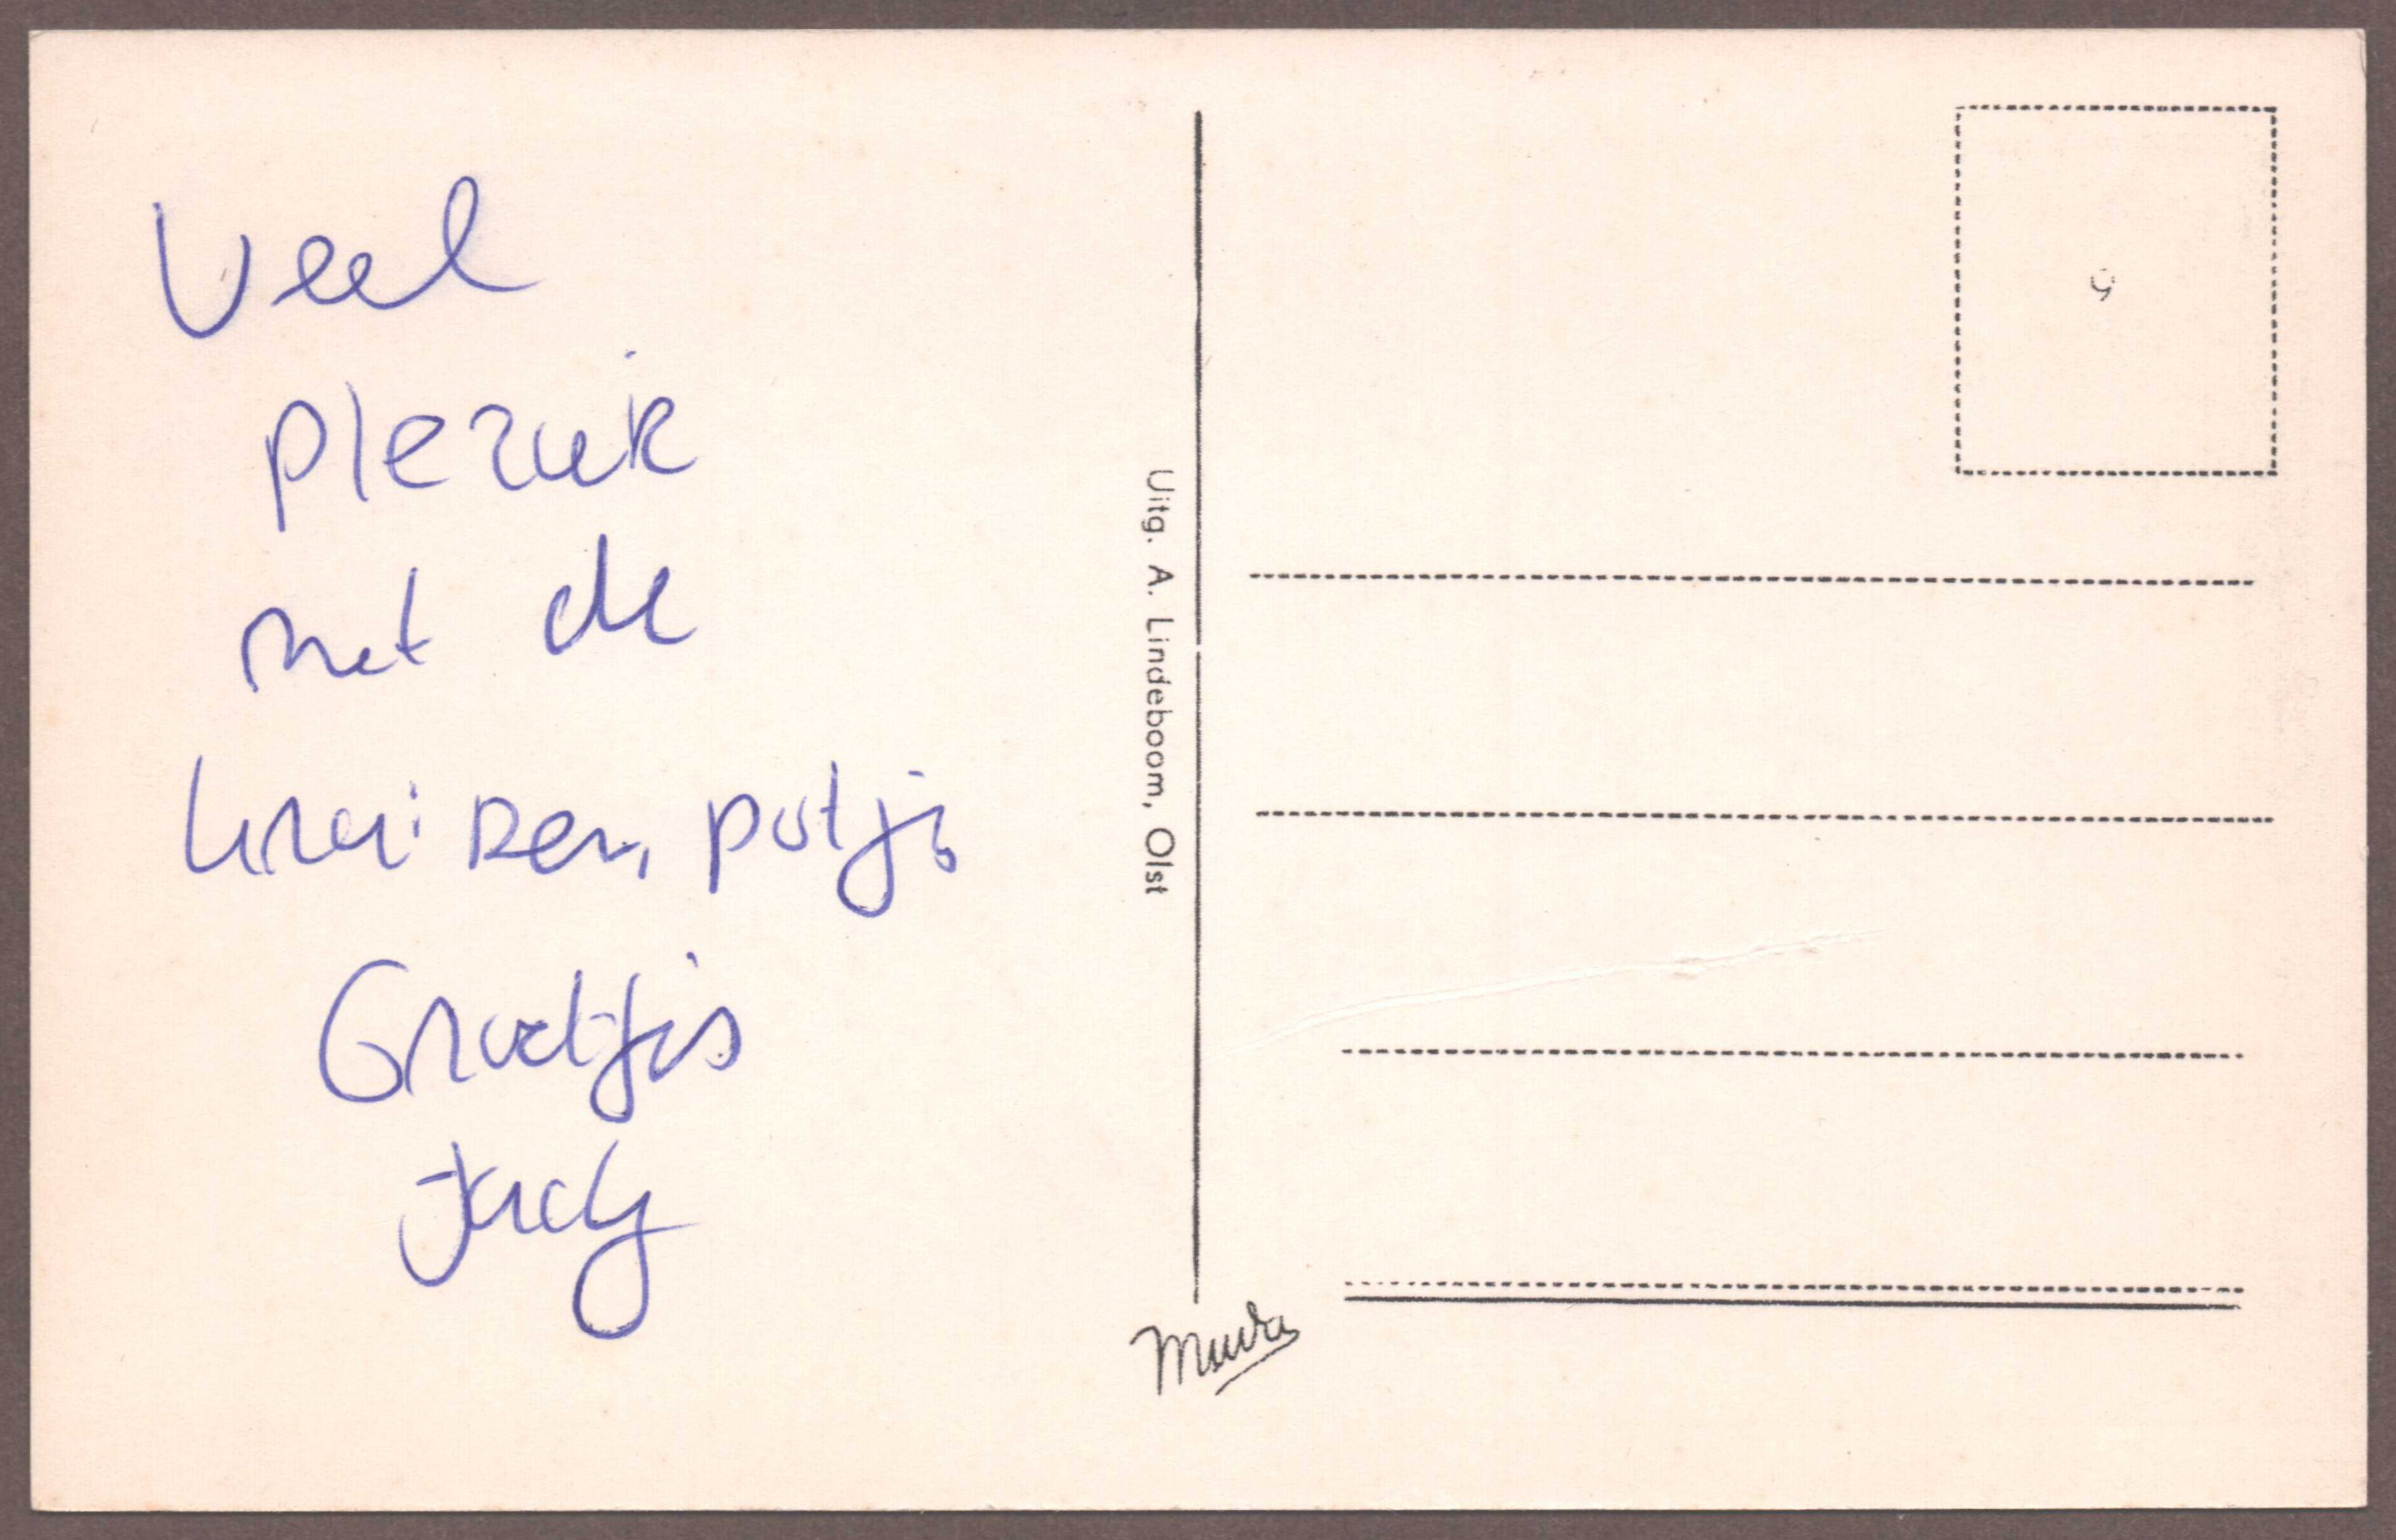 Veel
plezier
met de
kruizen, potjs
Groetjes
Judy
Uitg. A. Lindeboom, Olst
Muva